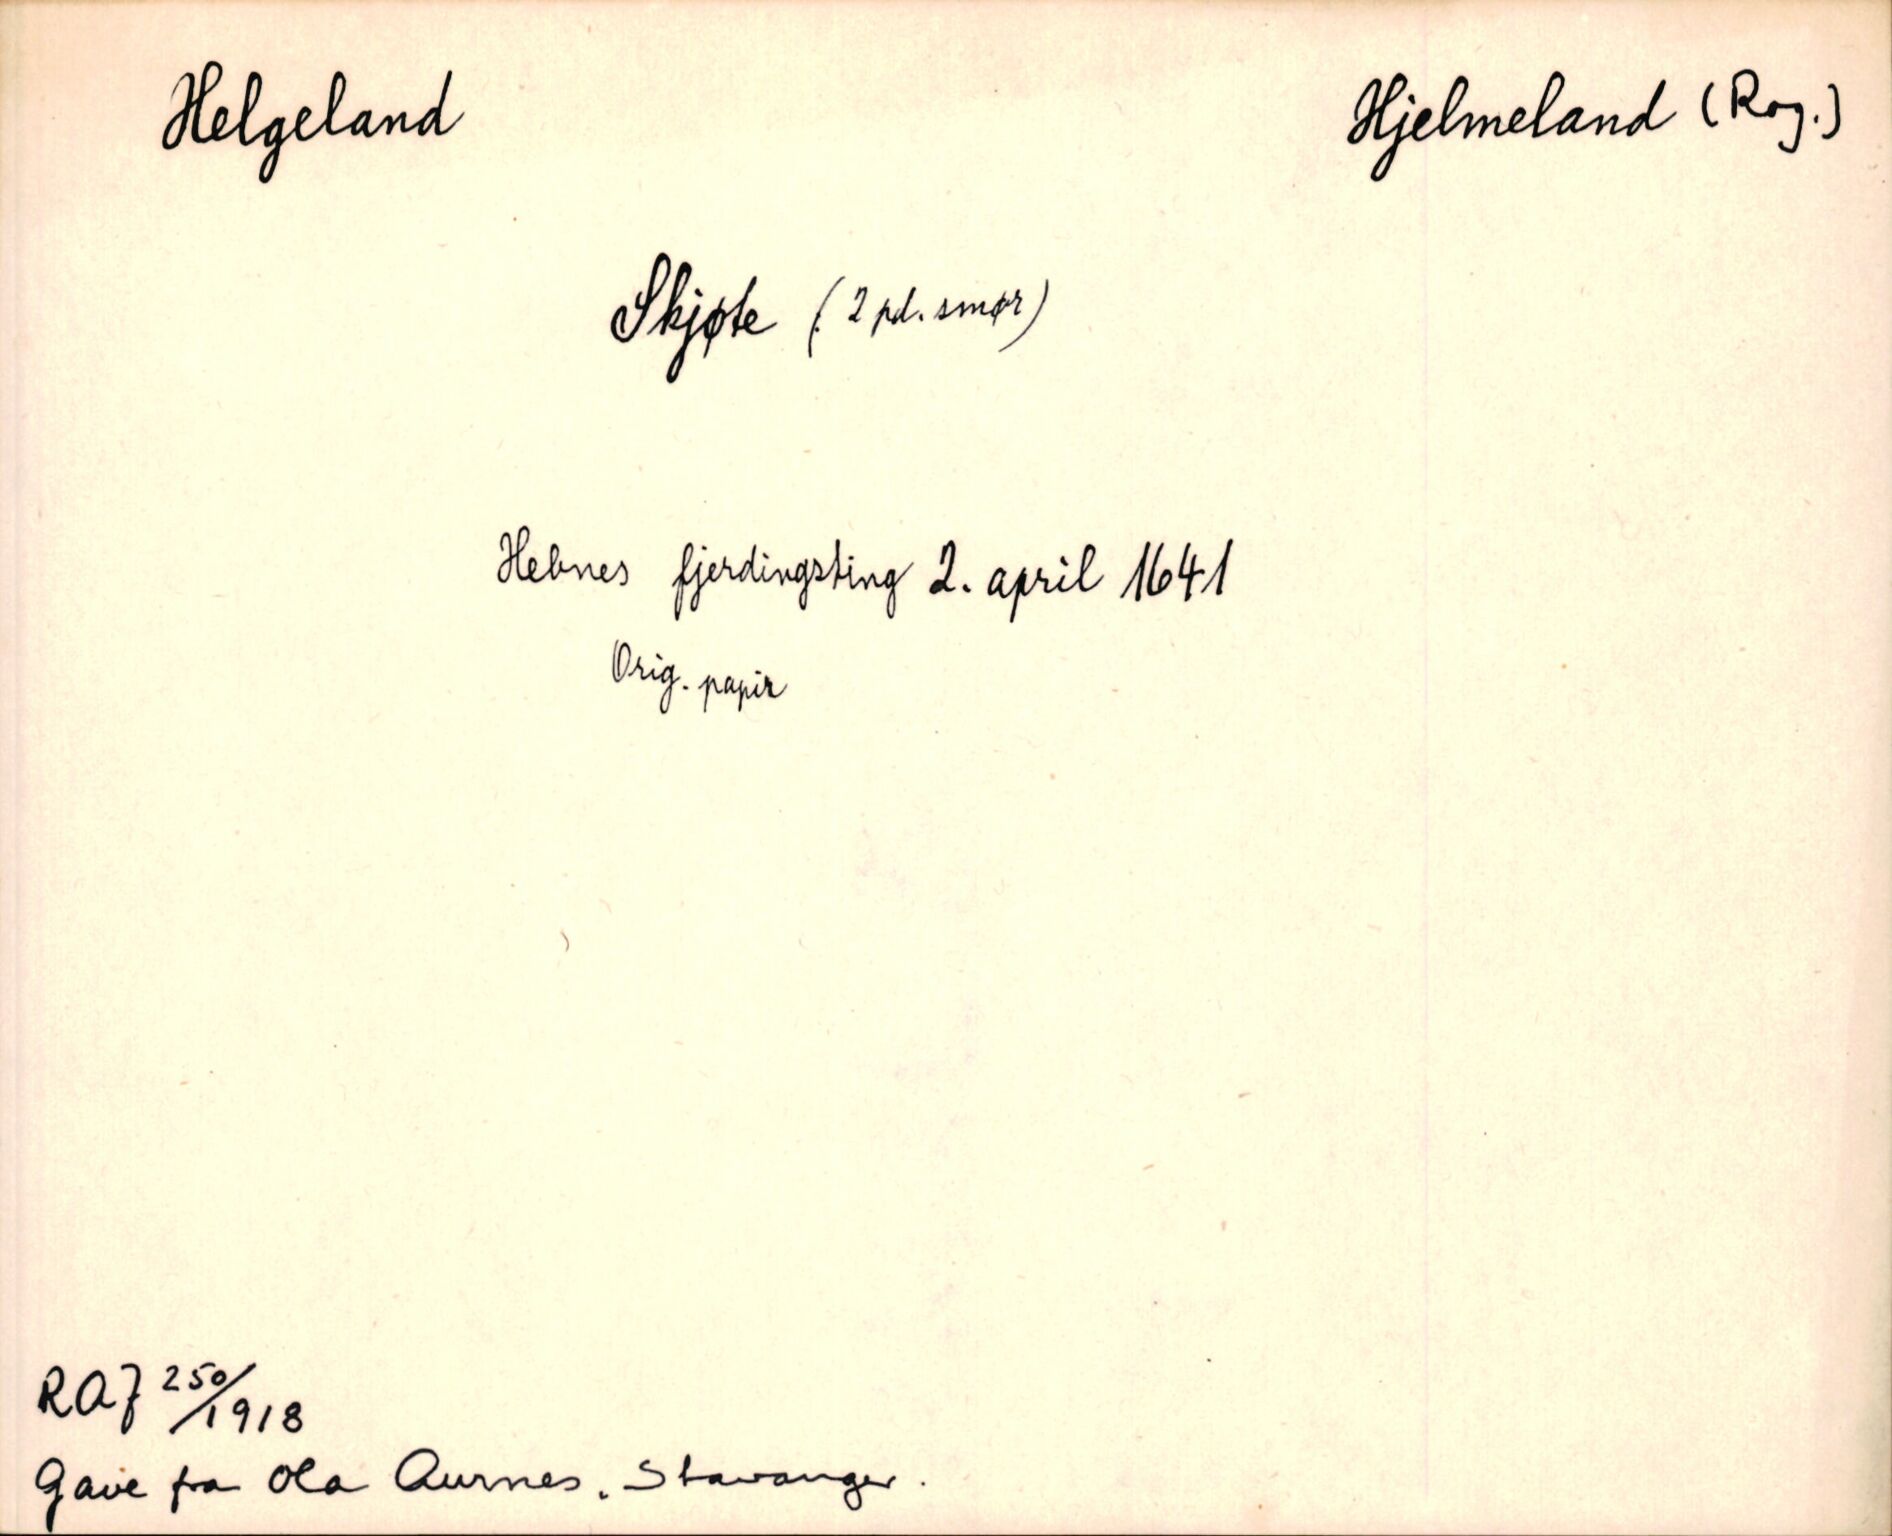 Helgeland
Hjelmeland (Rog.)
Skjøte (2 pd. smør)
Hebnes fjerdingsting 2. april 1641
Orig. papir
RAJ 250/1918
Gave fra Ola Aurnes, Stavanger.